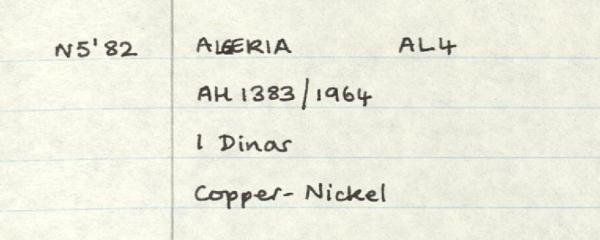 N5'82 ALGERIA AL4
AH 1383/1964
1 Dinar
Copper-Nickel